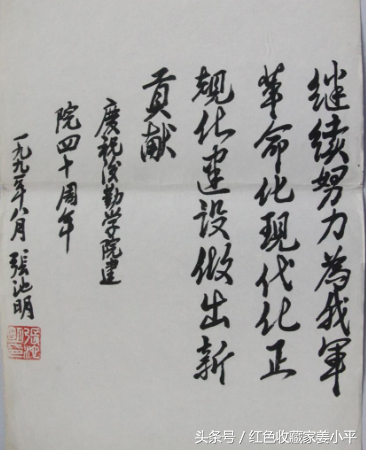 继续努力為我軍
革命化现代化正
规化建设做出新
貢献
慶祝后勤学院建
院四十周年
一九九二年八月 張池明
头条号 / 红色收藏家姜小平